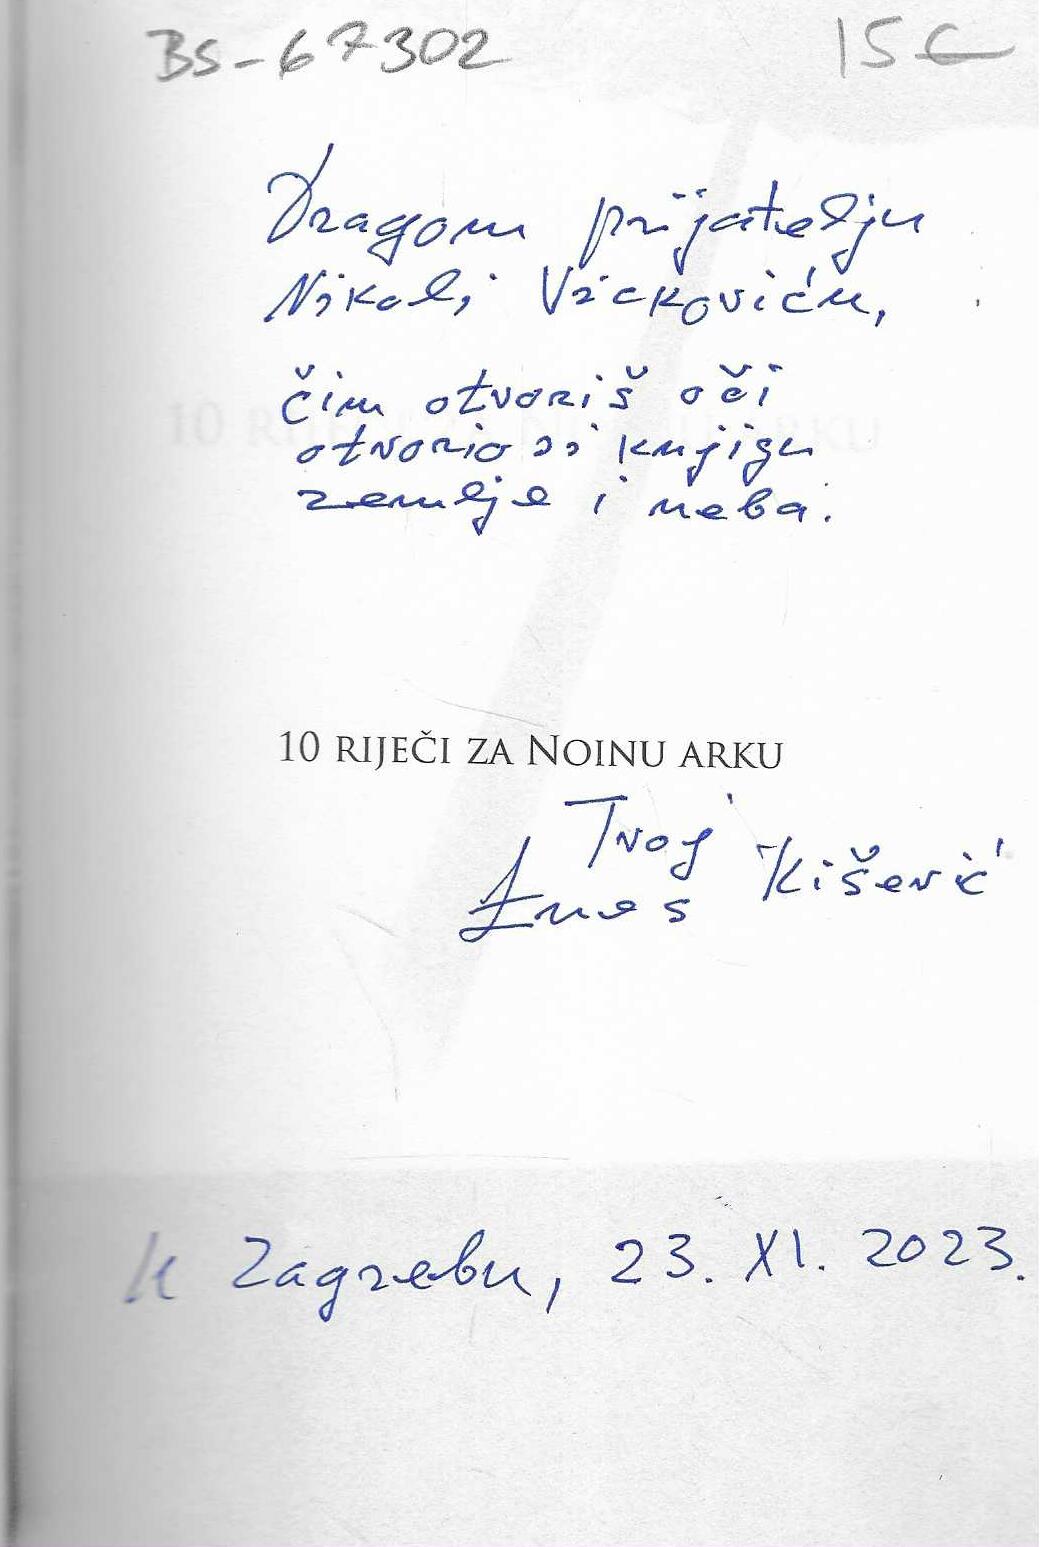 BS-67302 15€
Dragom prijatelju
Nikoli Vickoviću,
čim otvoriš oči
otvorio si knjigu
zemlje i neba.
10 RIJEČI ZA NOINU ARKU
Tvoj
Enes Kišević
U Zagrebu, 23. XI. 2023.